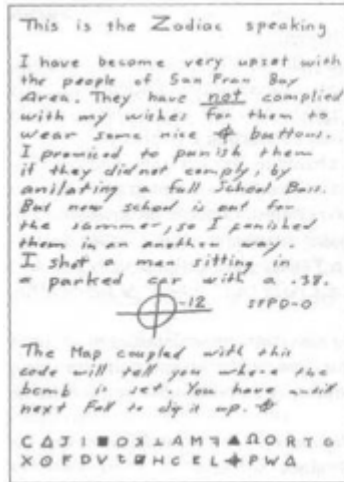 This is the Zodiac speaking
I have become very upset with
the people of San Fran Bay
Area. They have not complied
with my wishes for them to
wear some nice ⌖ buttons.
I promised to punish them
if they did not comply, by
anilating a full School Buss.
But now school is out for
the summer, so I punished
them in an another way.
I shot a man sitting in
a parked car with a .38.
⌖-12 SFPD-0
The Map coupled with this
code will tell you where the
bomb is set. You have untill
next Fall to dig it up. ⌖
C Δ J I ■ O ꓘ ⊥ A M ꟻ ▲ Ω O R T G
X O F D V t ◪ H C E L ⌖ P W Δ